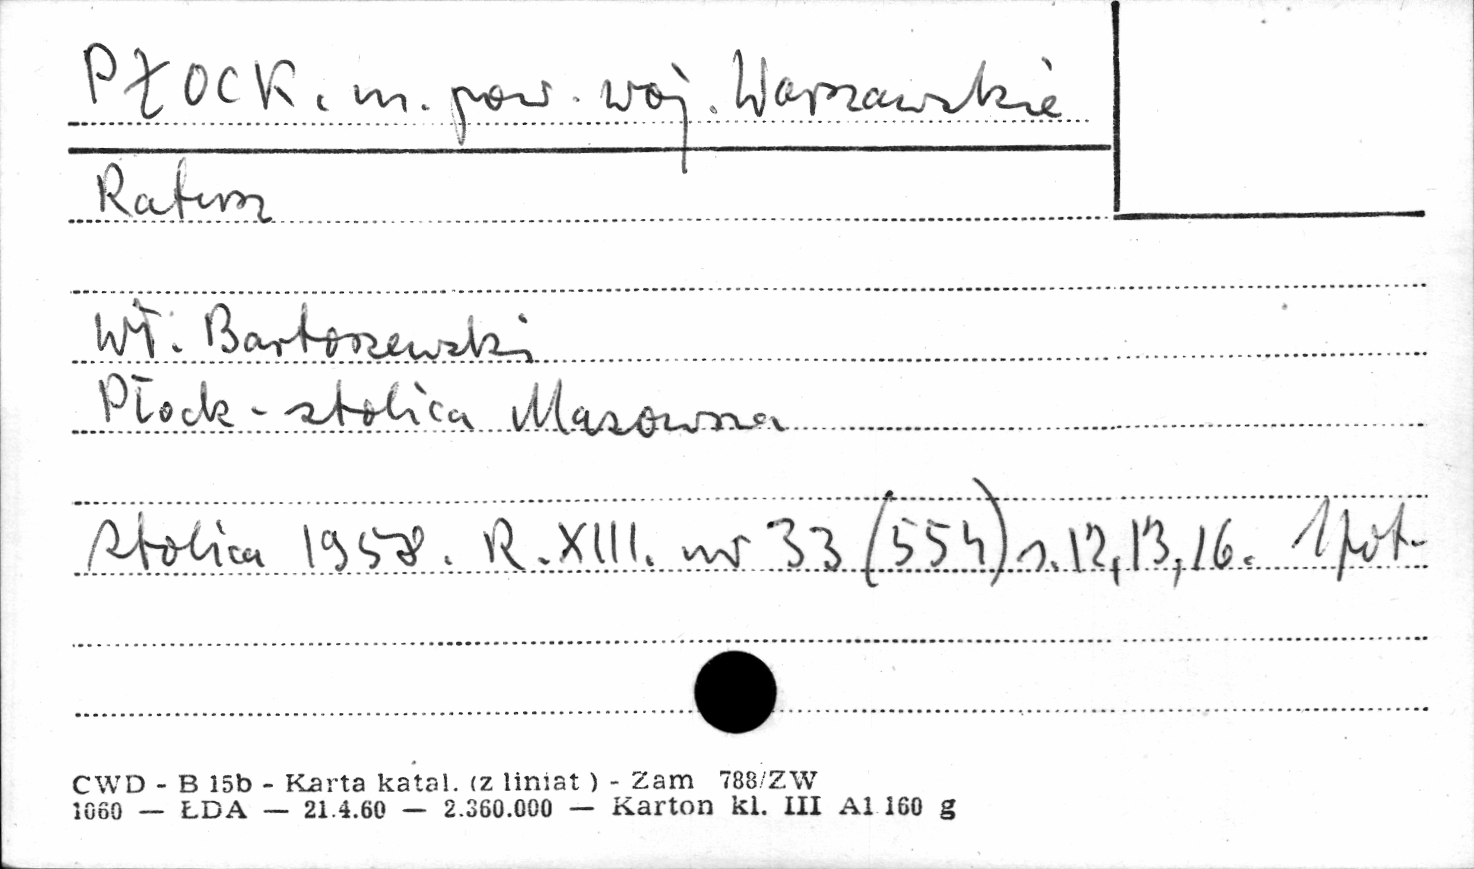 PŁOCK. m. pow. woj. Warszawskie
Ratusz
Wł. Bartoszewski
Płock - stolica Mazowsza
Stolica 1958. R. XIII. nr 33 (554) s. 12, 13, 16. 1 fot.
CWD - B 15b - Karta katal. (z liniat ) - Zam 788/ZW
1060 — ŁDA — 21.4.60 — 2.360.000 — Karton kl. III A1 160 g